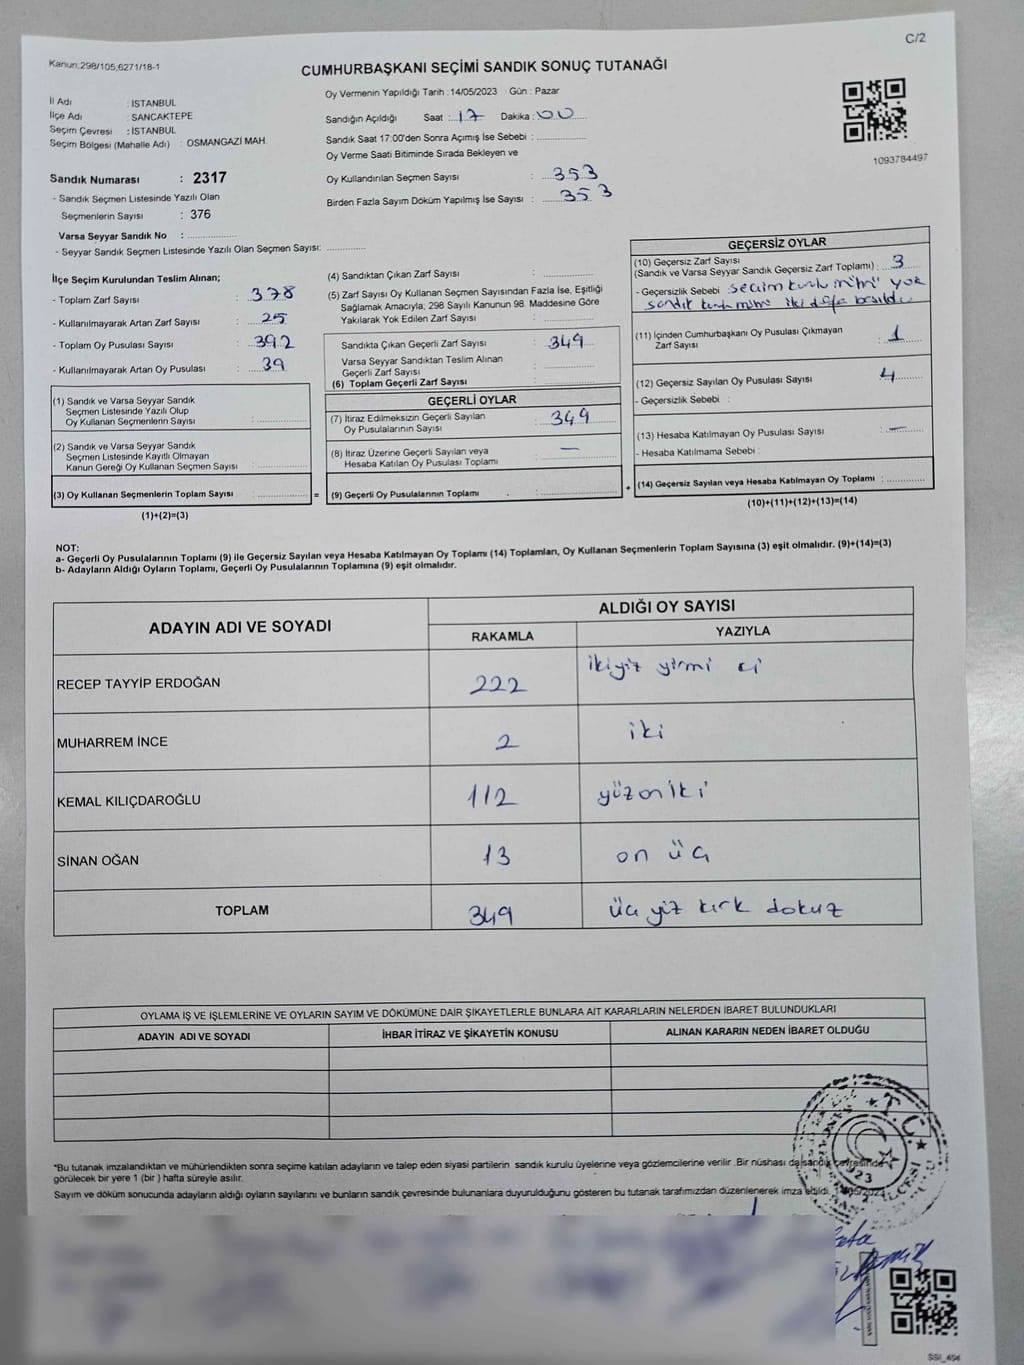 C/2
Kanun:298/105,6271/18-1
CUMHURBAŞKANI SEÇİMİ SANDIK SONUÇ TUTANAĞI
İl Adı : İSTANBUL
İlçe Adı : SANCAKTEPE
Seçim Çevresi : İSTANBUL
Seçim Bölgesi (Mahalle Adı) : OSMANGAZİ MAH.
Sandık Numarası : 2317
- Sandık Seçmen Listesinde Yazılı Olan
Seçmenlerin Sayısı : 376
Varsa Seyyar Sandık No :
- Seyyar Sandık Seçmen Listesinde Yazılı Olan Seçmen Sayısı:
Oy Vermenin Yapıldığı Tarih :14/05/2023 Gün : Pazar
Sandığın Açıldığı Saat : 17 Dakika : 00
Sandık Saat 17:00'den Sonra Açımış İse Sebebi :
Oy Verme Saati Bitiminde Sırada Bekleyen ve
Oy Kullandırılan Seçmen Sayısı : 353
Birden Fazla Sayım Döküm Yapılmış İse Sayısı : 353
1093784497
İlçe Seçim Kurulundan Teslim Alınan;
- Toplam Zarf Sayısı : 378
- Kullanılmayarak Artan Zarf Sayısı : 25
- Toplam Oy Pusulası Sayısı : 392
- Kullanılmayarak Artan Oy Pusulası : 39
(1) Sandık ve Varsa Seyyar Sandık
Seçmen Listesinde Yazılı Olup
Oy Kullanan Seçmenlerin Sayısı :
(2) Sandık ve Varsa Seyyar Sandık
Seçmen Listesinde Kayıtlı Olmayan
Kanun Gereği Oy Kullanan Seçmen Sayısı :
(3) Oy Kullanan Seçmenlerin Toplam Sayısı : =
(1)+(2)=(3)
(4) Sandıktan Çıkan Zarf Sayısı :
(5) Zarf Sayısı Oy Kullanan Seçmen Sayısından Fazla İse, Eşitliği
Sağlamak Amacıyla, 298 Sayılı Kanunun 98. Maddesine Göre
Yakılarak Yok Edilen Zarf Sayısı :
Sandıkta Çıkan Geçerli Zarf Sayısı : 349
Varsa Seyyar Sandıktan Teslim Alınan
Geçerli Zarf Sayısı :
(6) Toplam Geçerli Zarf Sayısı :
GEÇERLİ OYLAR
(7) İtiraz Edilmeksizin Geçerli Sayılan
Oy Pusulalarının Sayısı : 349
(8) İtiraz Üzerine Geçerli Sayılan veya
Hesaba Katılan Oy Pusulası Toplamı : —
(9) Geçerli Oy Pusulalarının Toplamı : +
GEÇERSİZ OYLAR
(10) Geçersiz Zarf Sayısı
(Sandık ve Varsa Seyyar Sandık Geçersiz Zarf Toplamı) : 3
- Geçersizlik Sebebi : yok
sandık iki
(11) İçinden Cumhurbaşkanı Oy Pusulası Çıkmayan
Zarf Sayısı : 1
(12) Geçersiz Sayılan Oy Pusulası Sayısı : 4
- Geçersizlik Sebebi :
(13) Hesaba Katılmayan Oy Pusulası Sayısı : —
- Hesaba Katılmama Sebebi :
(14) Geçersiz Sayılan veya Hesaba Katılmayan Oy Toplamı :
(10)+(11)+(12)+(13)=(14)
NOT:
a- Geçerli Oy Pusulalarının Toplamı (9) ile Geçersiz Sayılan veya Hesaba Katılmayan Oy Toplamı (14) Toplamları, Oy Kullanan Seçmenlerin Toplam Sayısına (3) eşit olmalıdır. (9)+(14)=(3)
b- Adayların Aldığı Oyların Toplamı, Geçerli Oy Pusulalarının Toplamına (9) eşit olmalıdır.
ADAYIN ADI VE SOYADI
ALDIĞI OY SAYISI
RAKAMLA YAZIYLA
RECEP TAYYİP ERDOĞAN 222 ikiyiz yirmi
MUHARREM İNCE 2 iki
KEMAL KILIÇDAROĞLU 112 yüzoniki
SİNAN OĞAN 13 on üç
TOPLAM 349 üç yiz kırk dokuz
OYLAMA İŞ VE İŞLEMLERİNE VE OYLARIN SAYIM VE DÖKÜMÜNE DAİR ŞİKAYETLERLE BUNLARA AİT KARARLARIN NELERDEN İBARET BULUNDUKLARI
ADAYIN ADI VE SOYADI İHBAR İTİRAZ VE ŞİKAYETİN KONUSU ALINAN KARARIN NEDEN İBARET OLDUĞU
*Bu tutanak imzalandıktan ve mühürlendikten sonra seçime katılan adayların ve talep eden siyasi partilerin sandık kurulu üyelerine veya gözlemcilerine verilir .Bir nüshası da sandık çevresinde
görülecek bir yere 1 (bir ) hafta süreyle asılır.
Sayım ve döküm sonucunda adayların aldığı oyların sayılarını ve bunların sandık çevresinde bulunanlara duyurulduğunu gösteren bu tutanak tarafımızdan düzenlenerek imza edildi. 14/05/2023
T.C.
SSI_404